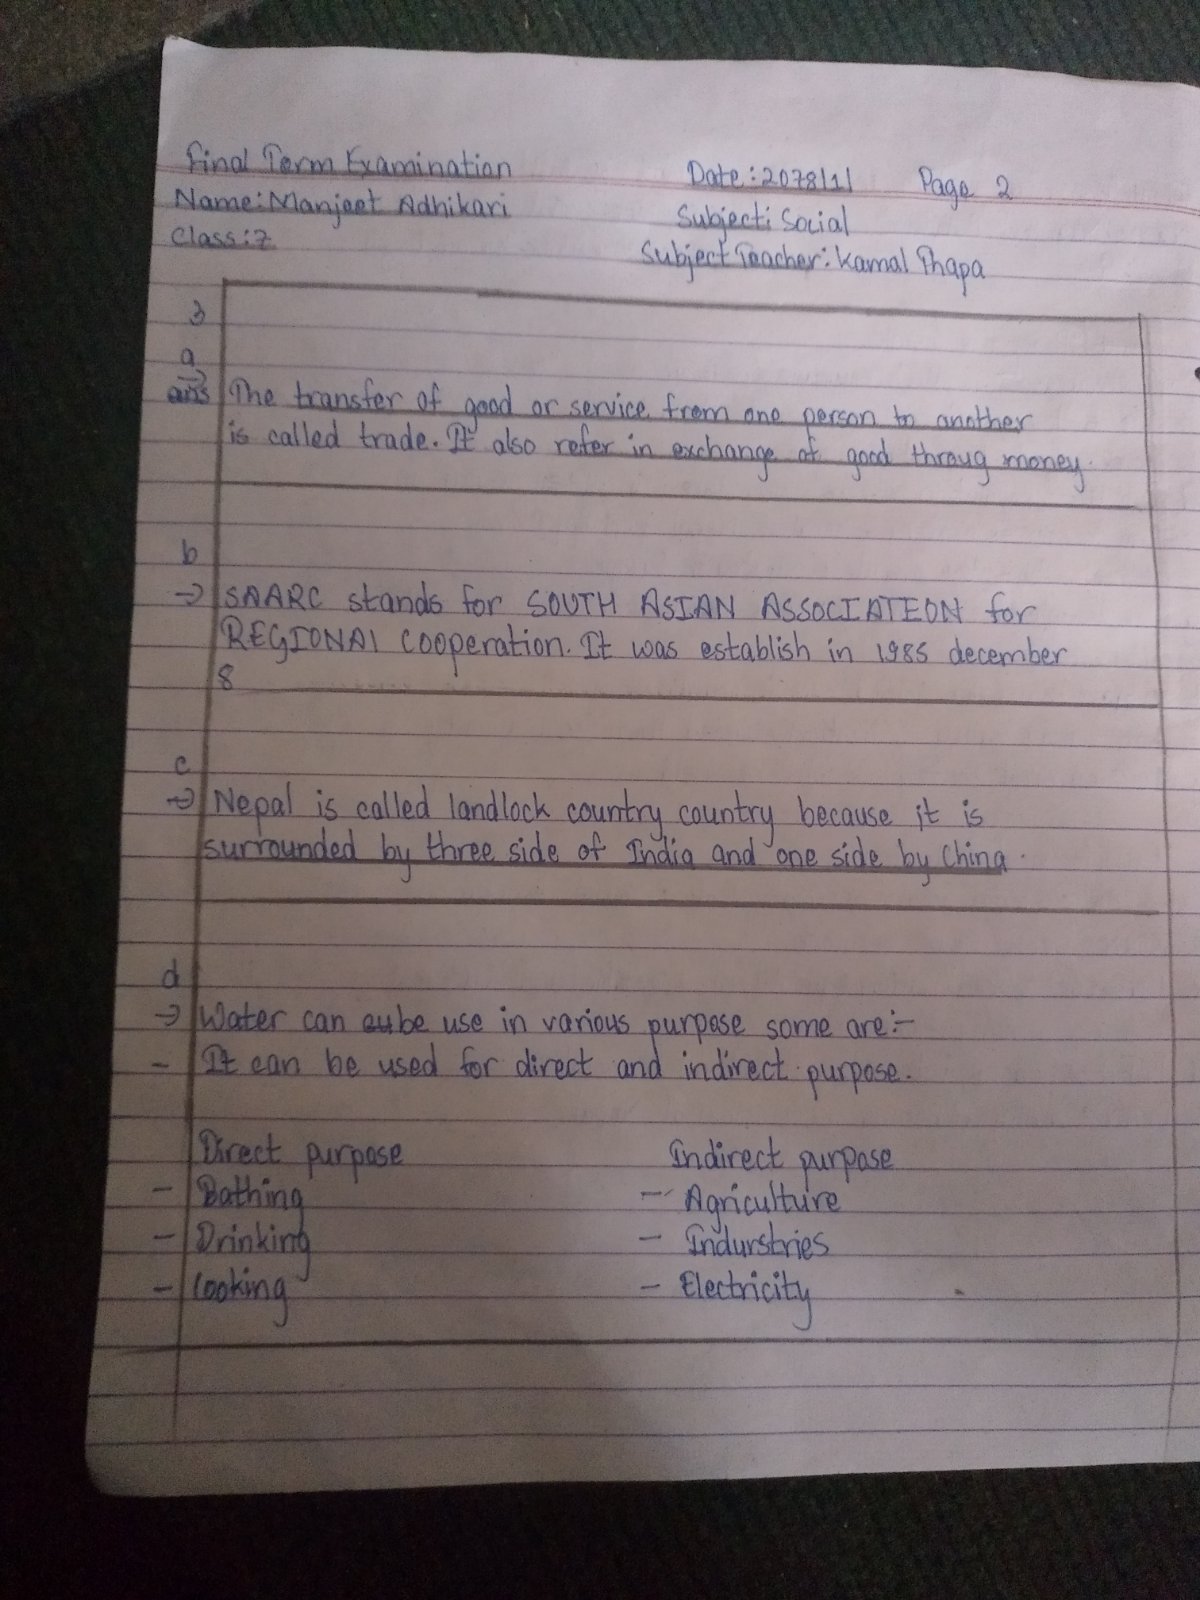 Final Term Examination Date: 2078/1/ Page 2
Name: Manjeet Adhikari Subject: Social
Class: 7 Subject Teacher: Kamal Thapa
3
a
ans The transfer of good or service from one person to another
is called trade. It also refer in exchange of good throug money.
b
→ SAARC stands for SOUTH ASIAN ASSOCIATEON for
REGIONAl Cooperation. It was establish in 1985 december
8
c
→ Nepal is called landlock country country because it is
surrounded by three side of India and one side by China.
d
→ Water can be use in various purpose some are:-
- It can be used for direct and indirect purpose.
Direct purpose Indirect purpose
- Bathing - Agriculture
- Drinking - Indurstries
- Cooking - Electricity